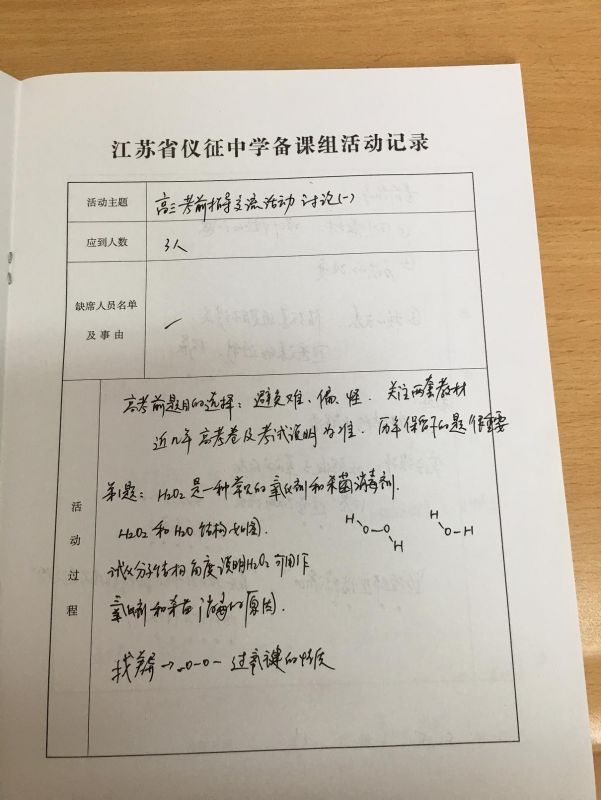 江苏省仪征中学备课组活动记录
活动主题 高三考前指导交流活动 讨论(一)
应到人数 3人
缺席人员名单
及事由
活动过程
高考前题目的选择：避免难、偏、怪. 关注两套教材
近几年高考卷及考试说明为准. 历年保留下的题很重要
第1题：H2O2是一种常见的氧化剂和杀菌消毒剂.
H2O2 和 H2O 结构如图.
H O—O H
H O H
试从分子结构角度说明H2O2可用作
氧化剂和杀菌消毒的原因.
找差异→ -O-O- 过氧键的性质